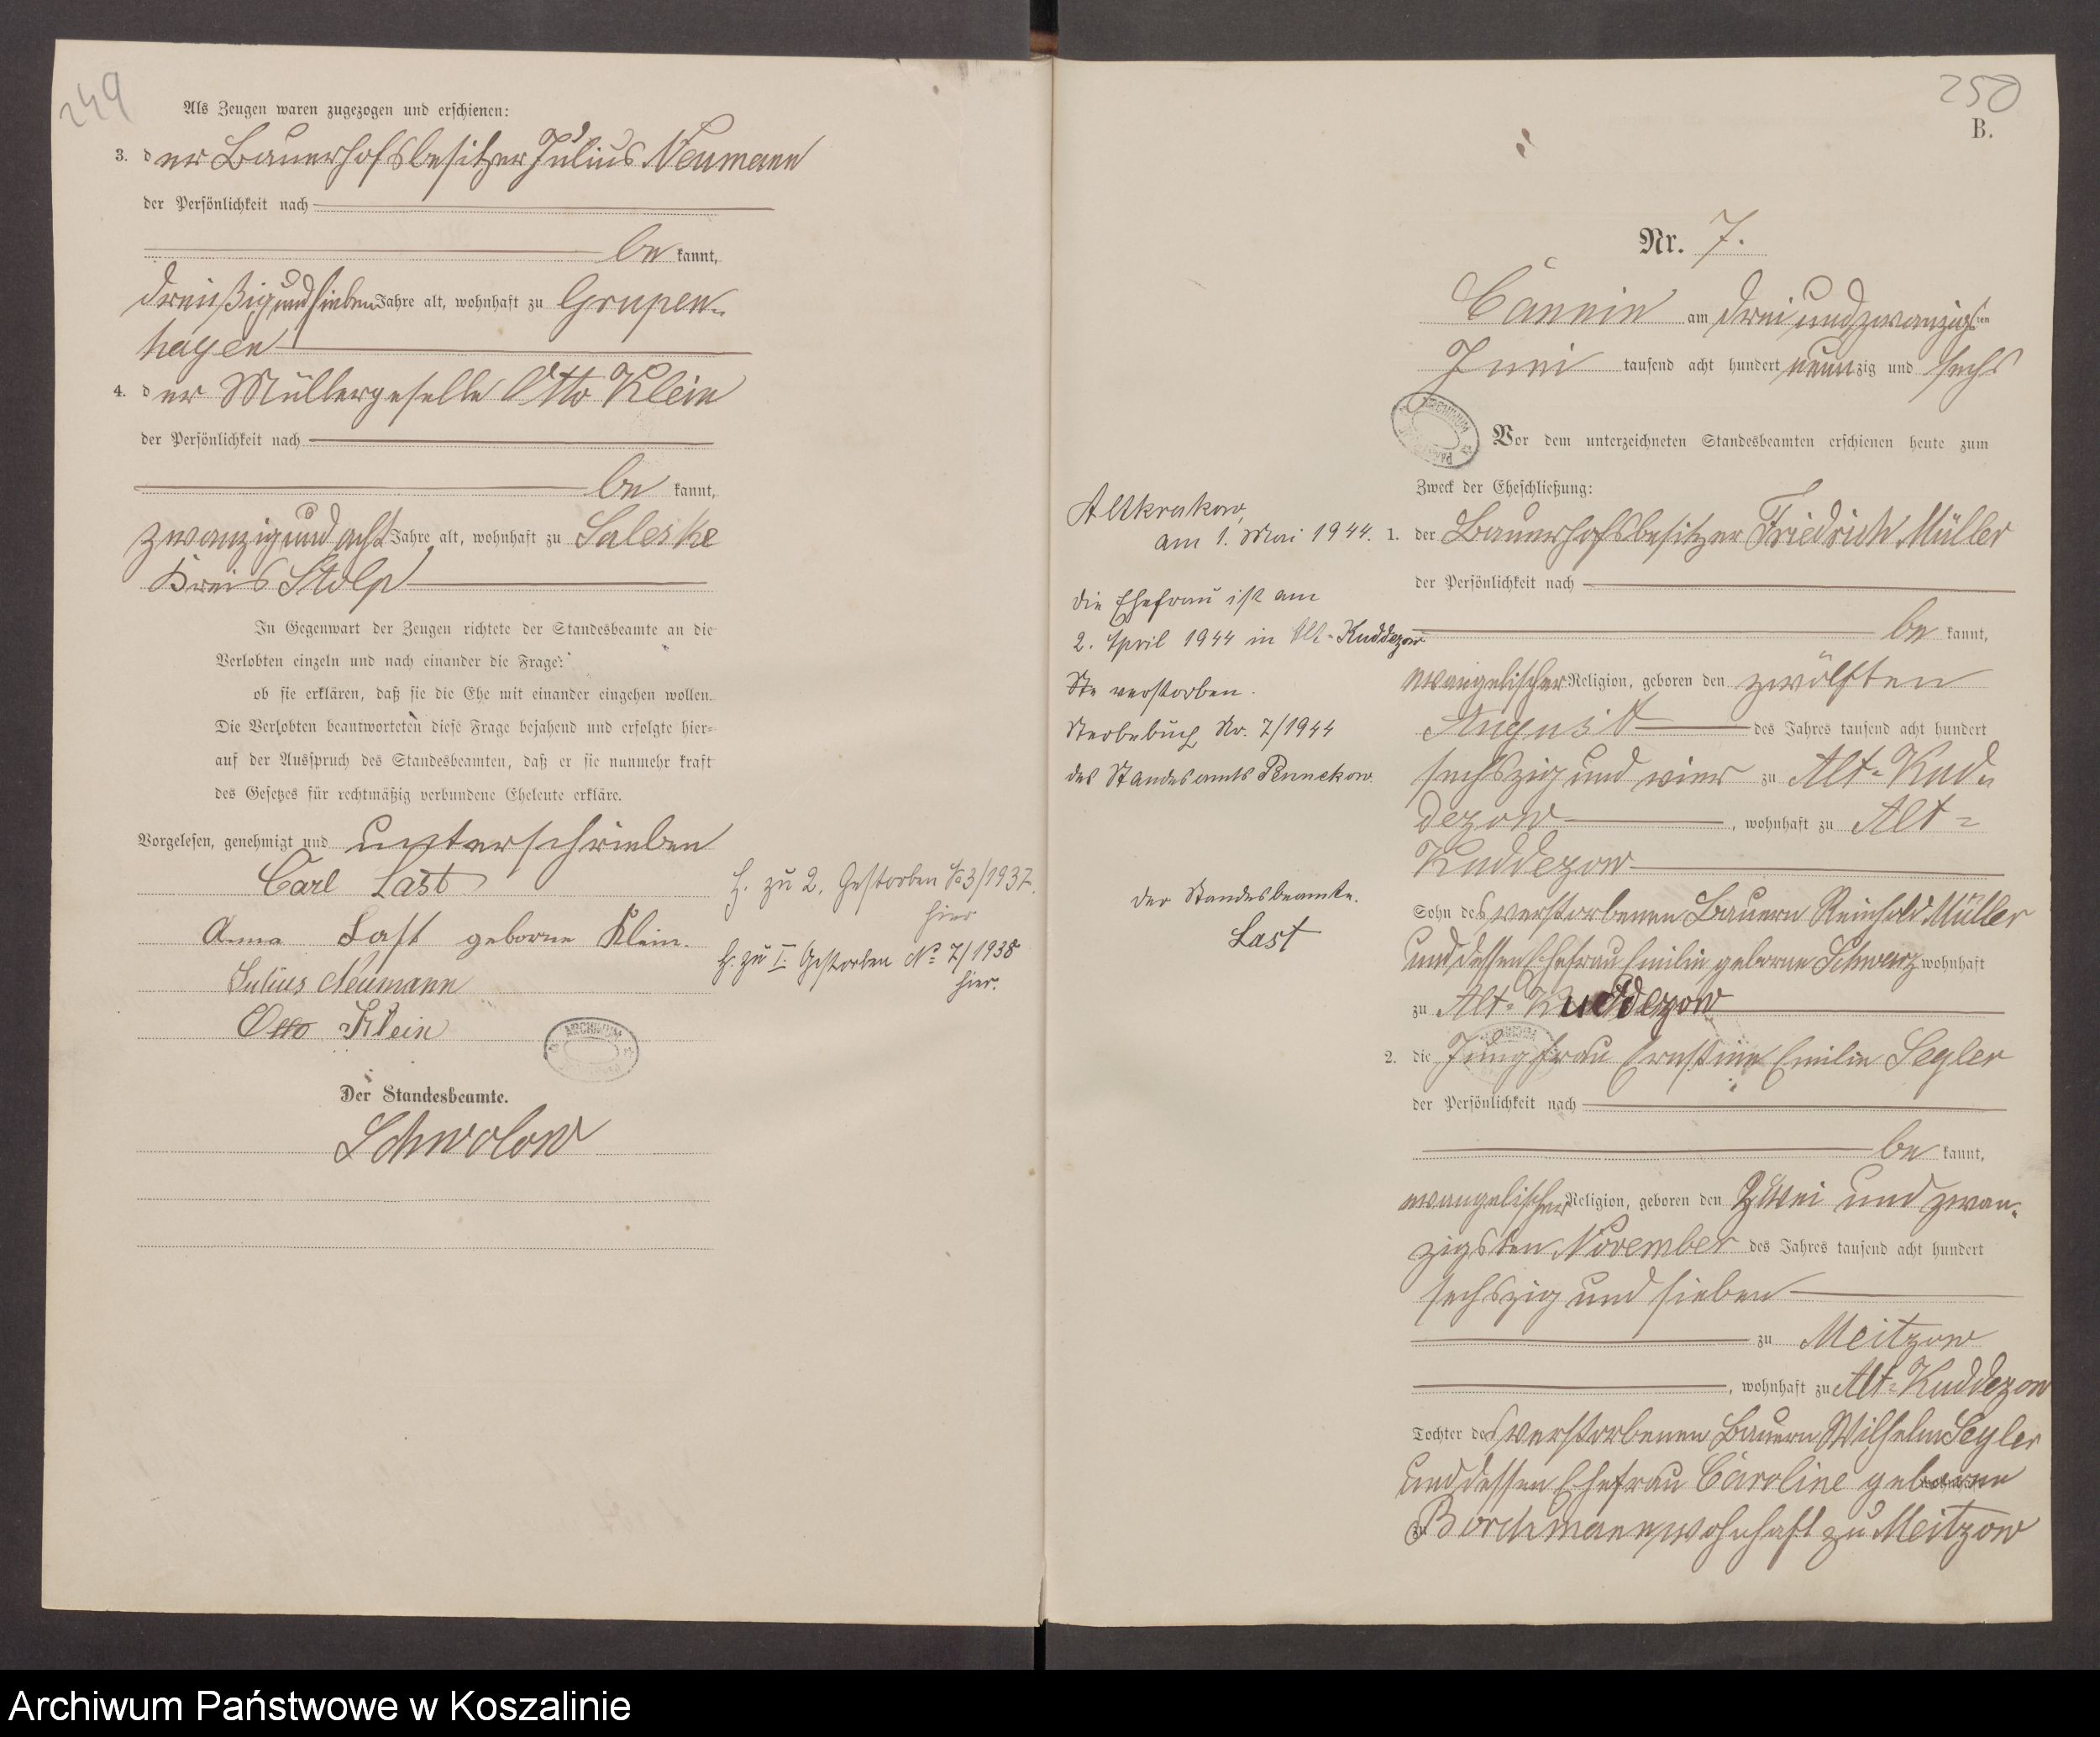 249
Als Zeugen waren zugezogen und erschienen:
3. der Bauerhofsbesitzer Julius Neumann
der Persönlichkeit nach
be kannt,
dreißig und sieben Jahre alt, wohnhaft zu Grupen-
hagen
4. der Müllergeselle Otto Klein
der Persönlichkeit nach
be kannt,
zwanzig und acht Jahre alt, wohnhaft zu Saleske
Kreis Stolp
In Gegenwart der Zeugen richtete der Standesbeamte an die
Verlobten einzeln und nach einander die Frage:
ob sie erklären, daß sie die Ehe mit einander eingehen wollen.
Die Verlobten beantworteten diese Frage bejahend und erfolgte hier-
auf der Ausspruch des Standesbeamten, daß er sie nunmehr kraft
des Gesetzes für rechtmäßig verbundene Eheleute erkläre.
Vorgelesen, genehmigt und unterschrieben
Carl Last
Anna Last geborne Klein.
Julius Neumann
Otto Klein
H. zu 2. Gestorben No 3/1937.
hier
H. zu I. Gestorben No 7/1938
hier.
ARCHIWUM
Der Standesbeamte.
Schwolow
250
B.
Nr. 7.
Cannin am drei und zwanzigsten
Juni tausend acht hundert neunzig und sechs
ARCHIWUM
Vor dem unterzeichneten Standesbeamten erschienen heute zum
Zweck der Eheschließung:
1. der Bauerhofsbesitzer Friedrich Müller
der Persönlichkeit nach
be kannt,
evangelischer Religion, geboren den zwölften
August des Jahres tausend acht hundert
sechszig und vier zu Alt-Kud-
dezow, wohnhaft zu Alt-
Kuddezow
Sohn des verstorbenen Bauern Reinhold Müller
und dessen Ehefrau Emilie geborne Schwarz wohnhaft
zu Alt-Kuddezow
2. die Jungfrau Ernstine Emilie Segler
der Persönlichkeit nach
be kannt,
evangelischer Religion, geboren den zwei und zwan-
zigsten November des Jahres tausend acht hundert
sechszig und sieben
zu Meitzow
, wohnhaft zu Alt-Kuddezow
Tochter des verstorbenen Bauern Wilhelm Segler
und dessen Ehefrau Caroline geborne
zu Borchmann, wohnhaft zu Meitzow
Altkrakow,
am 1. Mai 1944.
die Ehefrau ist am
2. April 1944 in Alt-Kuddezow
verstorben.
Sterbebuch Nr. 7/1944
des Standesamts Pennekow
der Standesbeamte.
Last
Archiwum Państwowe w Koszalinie